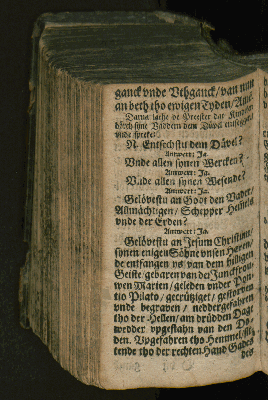 ganck vnde Vthganck / van nun
an beth tho ewigen Tyden / Amen.
Darna late de Preester dat Kindt
dörch syne Vaddern dem Düvel entseggen
vnde spreke:
N. Entsechstu dem Düvel?
Antwort: Ja.
Vnde allen synen Wercken?
Antwort: Ja.
Vnde allen synen Wesende?
Antwort: Ja.
Gelövestu an Godt den Vader /
Allmächtigen / Schepper Hemels
vnde der Erden?
Antwort: Ja.
Gelövestu an Jesum Christum /
synen enigen Söhne vnsen Heren /
de entfangen ys van dem hilligen
Geiste / gebaren van der Junckfrou-
wen Marien / geleden vnder Pon-
tio Pilato / gecrütziget / gestorven
vnde begraven / neddergefahren
tho der Hellen / am drüdden Dage
wedder vpgestahn van den Do-
den. Vpgefahren tho Hemmel / sit-
tende tho der rechten Hand Gades
des